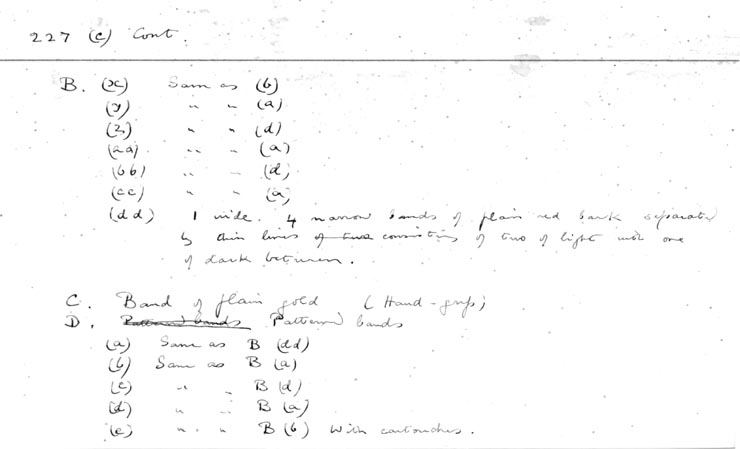 227 (c) Cont.
B. (x) Same as (b)
(y) " " (a)
(z) " " (d)
(aa) " " (a)
(bb) " " (d)
(cc) " " (a)
(dd) 1 wide. 4 narrow bands of plain red bark separated
by thin lines of two consisting of two of light with one
of dark between.
C. Band of plain gold (Hand-grip)
D. Patterned bands Patterned bands
(a) Same as B (dd)
(b) Same as B (a)
(c) " " B (d)
(d) " " B (a)
(e) " " B (b) With cartouches.